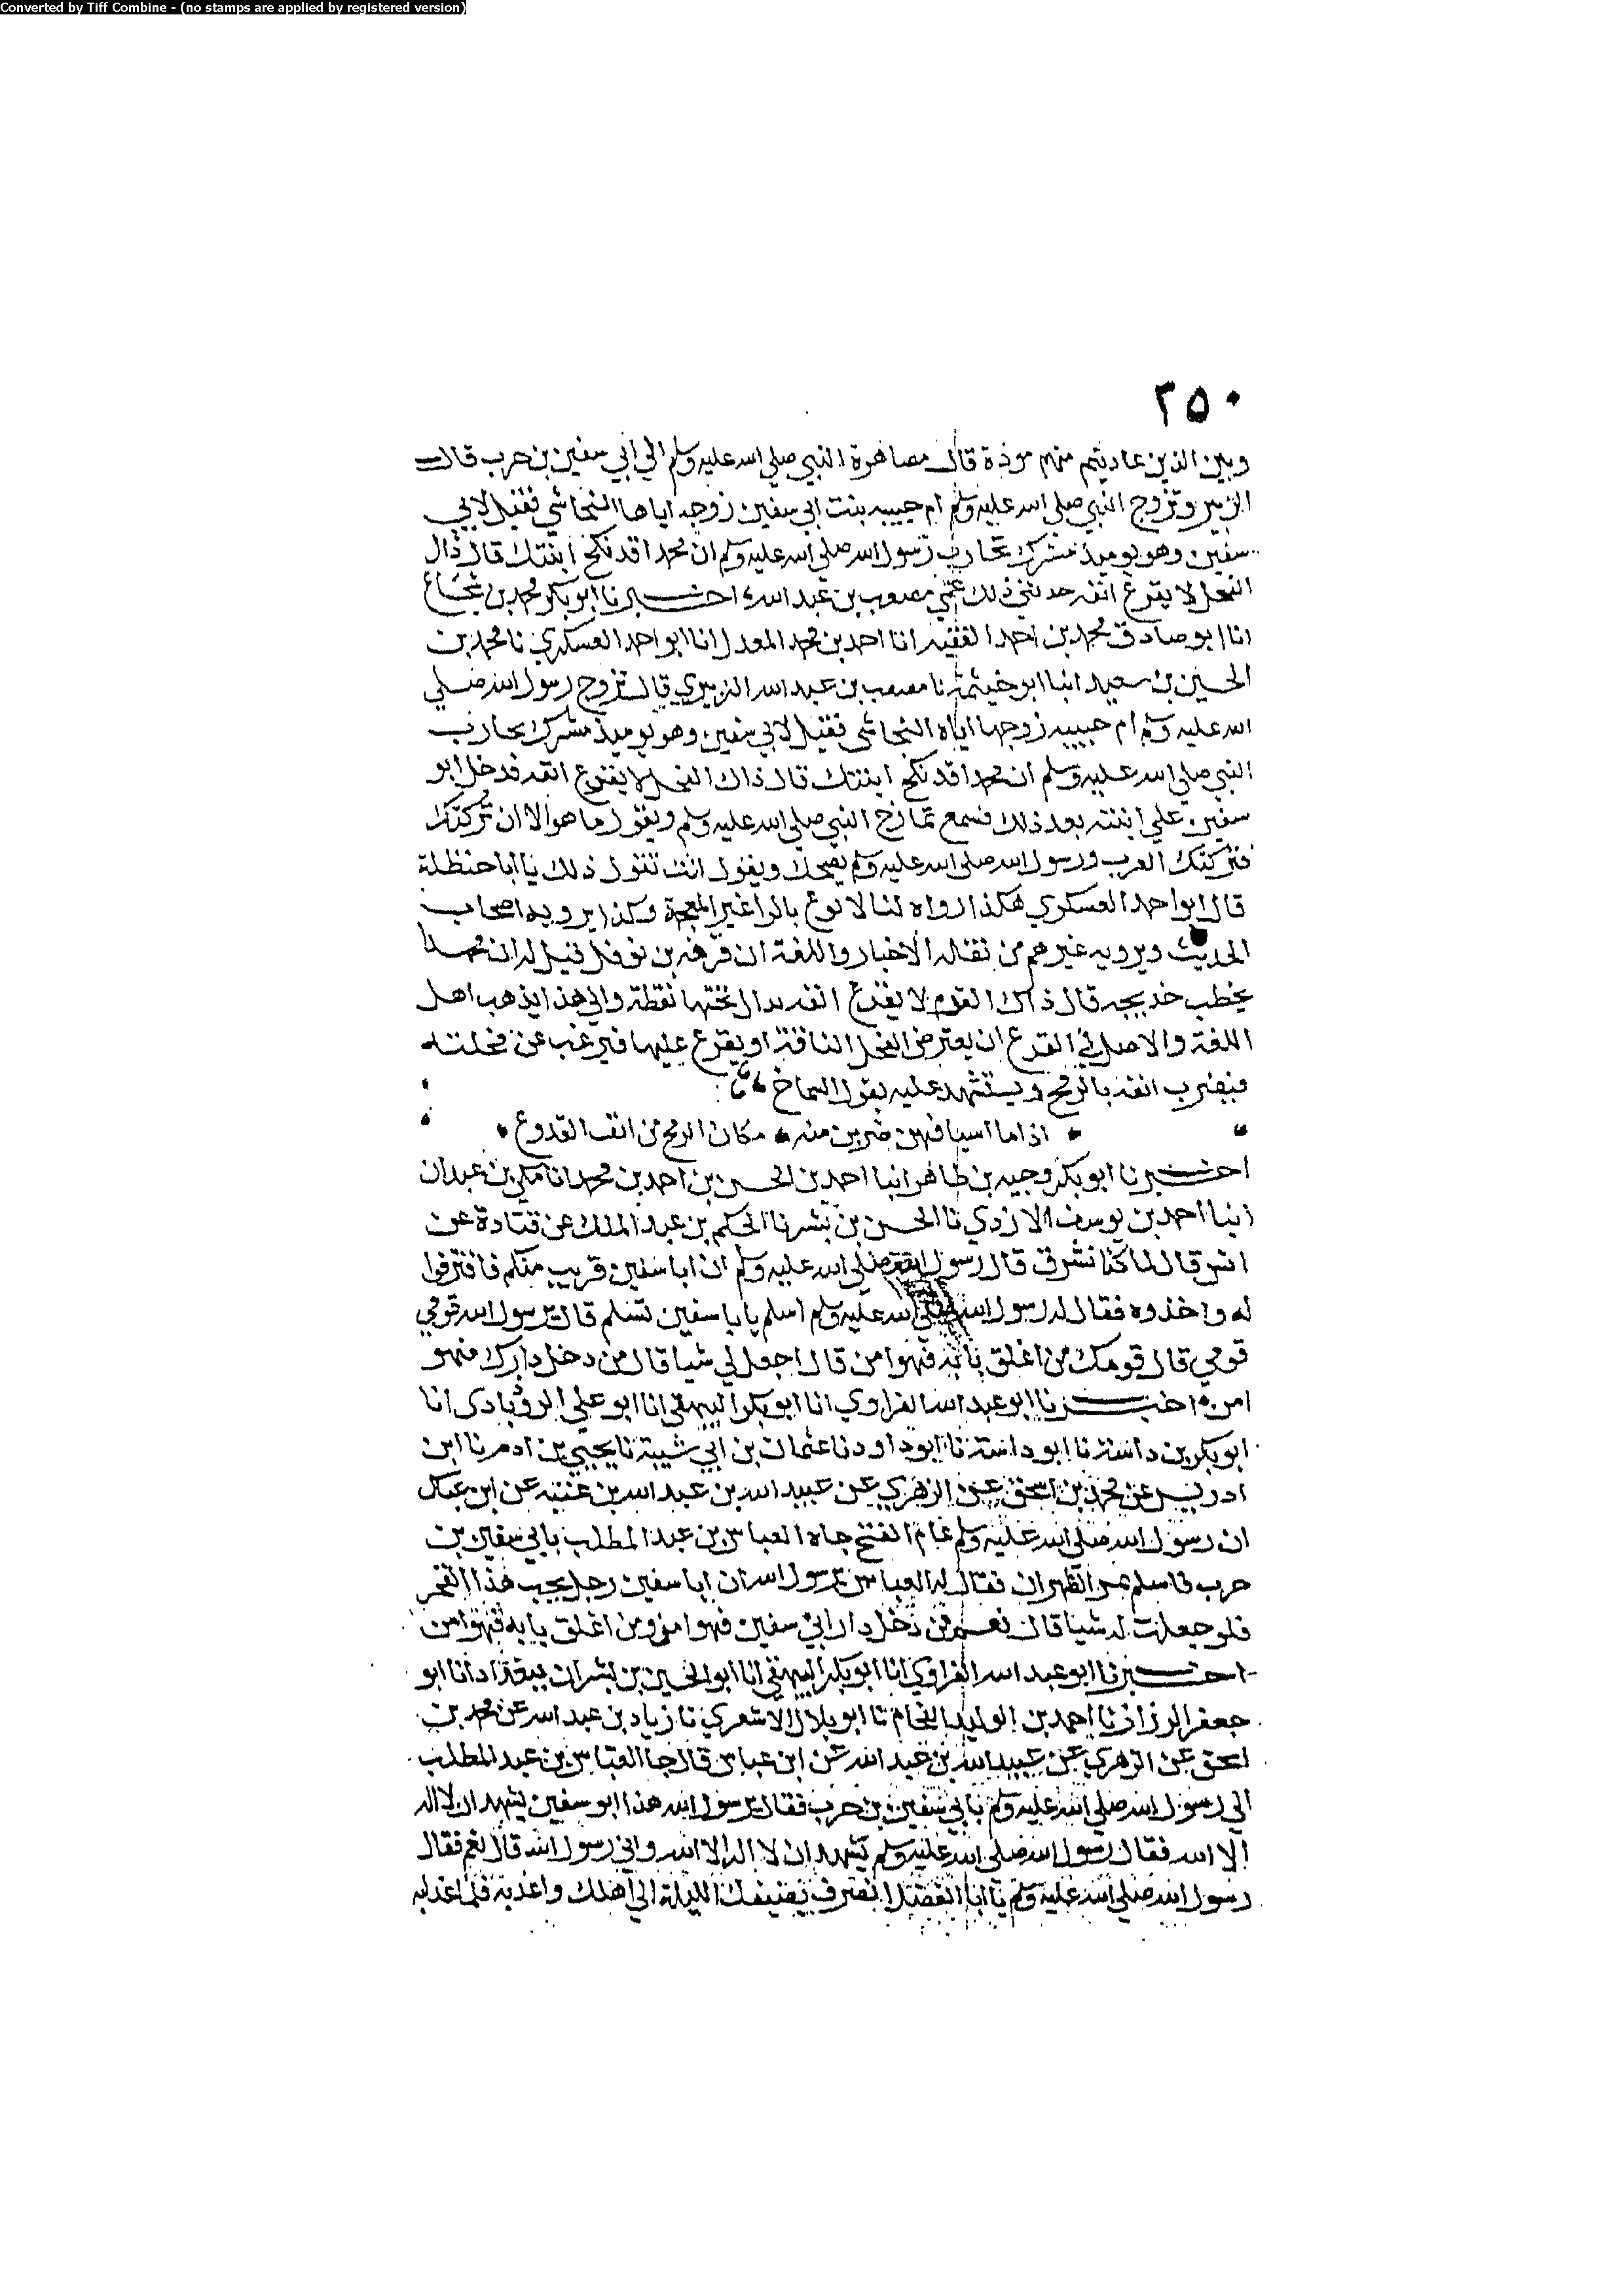 Converted by Tiff Combine - (no stamps are applied by registered version)
٢٥٠
وبين الذين عاديتم منهم مودة قال مصاهرة النبي صلى الله عليه وسلم الي ابي سفين بن حرب قال
الزبير وتزوج النبي صلى الله عليه وسلم ام حبيبه بنت ابي سفين زوجه اياها النجاشي فقيل لابي
سفين وهو يوميذ مشرك يحارب رسول الله صلى الله عليه وسلم ان محمدا قد نكح ابنتك قال ذاك
الفحل لا يقرع انفه حدثني ذلك عمي مصعب بن عبد الله اخبرنا ابو بكر محمد بن شجاع
انا ابو صادق محمد بن احمد الفقيه انا احمد بن محمد المعدل انا ابو احمد العسكري نا محمد بن
الحسين بن سعيد انبا ابن خيثمة نا مصعب بن عبد الله الزبيري قال تزوج رسول الله صلي
الله عليه وسلم ام حبيبه زوجها اياه النجاشي فقيل لابي سفين وهو يوميذ مشرك يحارب
النبي صلي الله عليه وسلم ان محمدا قد نكح ابنتك قال ذاك الفحل لا يقرع انفه فدخل ابو
سفين علي ابنته بعد ذلك فسمع تمازح النبي صلي الله عليه وسلم ويقول ما هو الا ان تركتك
فتركتك العرب ورسول الله صلى الله عليه وسلم يضحك ويقول انت تقول ذلك يا ابا حنظلة
قال ابو احمد العسكري هكذا رواه لنا لا يقرع بالرا غير المعجمة وكذا يرويه اصحاب
الحديث ويرويه غيرهم من نقله الاخبار واللغة ان ورقه بن نوفل قيل له ان محمدا
يخطب خديجه قال ذاك القرم لا يقدع انفه بدال تحتها نقطة والي هذا يذهب اهل
اللغة والاصل في القدع ان يعترض الفحل الناقة او يقرع عليها فيرغب عن فحلته
فيضرب انفه بالرمح ويستشهد عليه بقول الشماخ
اذا ما استافهن ضربن منه مكان الرمح من انف القدوع
اخبرنا ابو بكر وجيه بن طاهر انبا احمد بن الحسن بن احمد بن محمد انا مكي بن عبدان
انبا احمد بن يوسف الازدي نا الحسن بن بشر نا الحكم بن عبد الملك عن قتادة عن
انس قال لما كنا نشرف قال رسول الله صلي الله عليه وسلم ان ابا سفين قريب منكم فافترقوا
له واخذوه فقال له رسول الله صلي الله عليه وسلم اسلم يابا سفين تسلم قال يرسول الله قومي
قومي قال قومك من اغلق بابه فهو امن قال اجعل لي شيا قال من دخل دارك فهو
امن اخبرنا ابو عبد الله الفراوي انا ابو بكر البيهقي انا ابو علي الروذبادى انا
ابو بكر بن داسة نا ابو داسة نا ابو داود نا عثمان بن ابي شيبة نا يحيي بن ادم نا ابن
ادريس عن محمد بن اسحق عن الزهري عن عبيد الله بن عبد الله بن عتبه عن ابن عباس
ان رسول الله صلي الله عليه وسلم عام الفتح جاه العباس بن عبد المطلب بابي سفين بن
حرب فاسلم بمر الظهران فقال له العباس يرسول الله ان ابا سفين رجل يحب هذا الفخر
فلو جعلت له شيا قال نعم من دخل دار ابي سفين فهو امن ومن اغلق بابه فهو امن
اخبرنا ابو عبد الله الفراوي انا ابو بكر البيهقي انا ابو الحسين بن بشران ببغداد انا ابو
جعفر الرزاز نا احمد بن الوليد الفحام نا ابو بلال الاشعري نا زياد بن عبد الله عن محمد بن
اسحق عن الزهري عن عبيد الله بن عبد الله عن ابن عباس قال جا العباس بن عبد المطلب
الي رسول الله صلي الله عليه وسلم بابي سفين بن حرب فقال يرسول الله هذا ابو سفين يشهد ان لا اله
الا الله فقال رسول الله صلى الله عليه وسلم يشهد ان لا اله الا الله واني رسول الله قال نعم فقال
رسول الله صلي الله عليه وسلم يا ابا الفضل انصرف بضيفك الليلة الي اهلك واغد به فلما غدا به